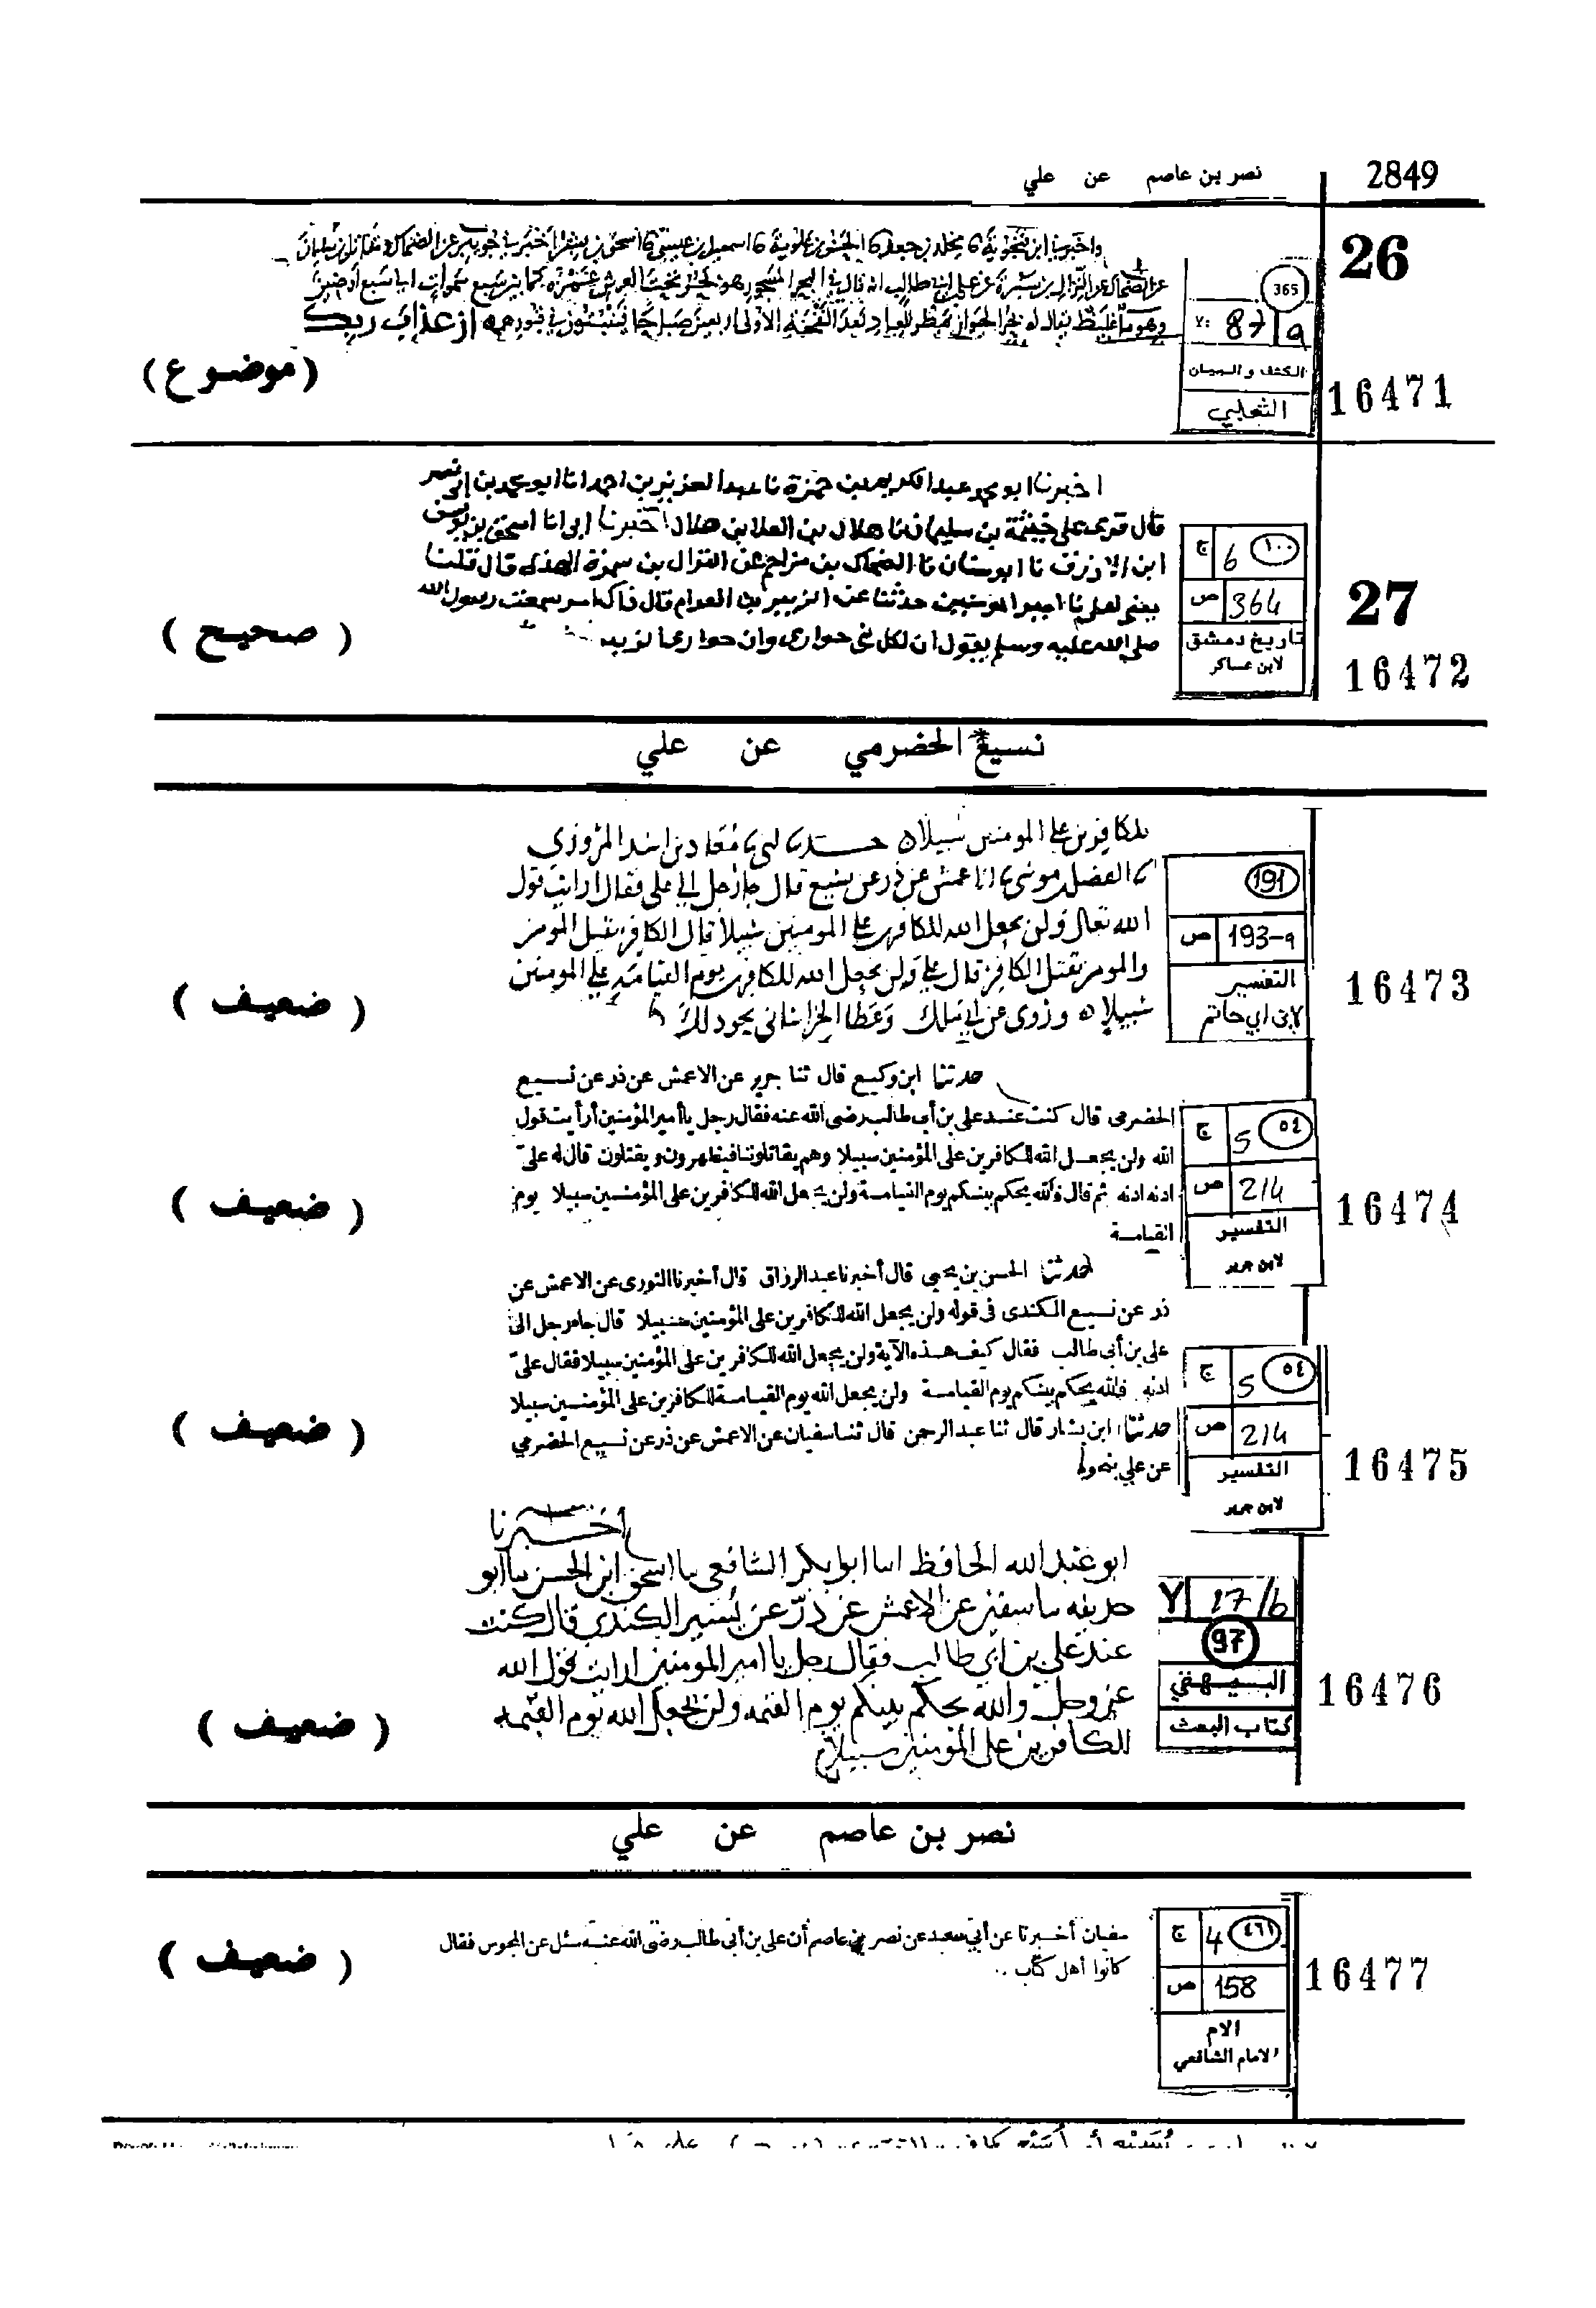 نصر بن عاصم عن علي
2849
26
365
٧: 87/a
الكشف والبيان
الثعلبي
16471
عن الضحاك عن النزال بن سبرة عن علي بن ابي طالب انه قال في البحر المسجور هو تحت العرش كما بين سبع سموات الى سبع ارضين
وهو ماء غليظ يقال له بحر الحيوان يمطر العباد بعد النفخة الاولى اربعين صباحا فينبتون في قبورهم ان عذاب ربك
(موضوع)
اخبرنا ابو محمد عبد الكريم بن حمزة نا عبد العزيز بن احمد انا ابو محمد بن ابي نصر
قال قرئ على خيثمة بن سليمان نا هلال بن العلا بن هلال اخبرنا ابي انا اسحق بن يوسف
ابن الازرق نا ابو سنان نا الضحاك بن مزاحم عن النزال بن سمرة الهذلي قال قلت
يعني لعلي نا امير المومنين حدثنا عن الزبير بن العوام قال ذاك امرؤ سمعت رسول الله
صلى الله عليه وسلم يقول ان لكل نبي حواري وان حواري الزبير
١٠٠
ج 6
ص 364
تاريخ دمشق
لابن عساكر
27
16472
( صحيح )
نسيع* الحضرمي عن علي
للكافرين على المومنين سبيلا حدثنا ابي نا معاذ بن اسد المروزي
نا الفضل بن موسى نا الاعمش عن ذر عن يسيع قال جاء رجل الى علي فقال ارايت قول
الله تعالى ولن يجعل الله للكافرين على المومنين سبيلا قال الكافر يقتل المومن
والمومن يقتل الكافر قال علي ولن يجعل الله للكافرين يوم القيامة على المومنين
سبيلا وروى عن ابي مالك وعطا الخراساني نحو ذلك
191
ص 193-a
التفسير
لابن ابي حاتم
16473
( ضعيف )
حدثنا ابن وكيع قال ثنا جرير عن الاعمش عن ذر عن نسيع
الحضرمى قال كنت عند على بن أبى طالب رضى الله عنه فقال رجل يا أمير المؤمنين أرأيت قول
الله ولن يجعل الله للكافرين على المؤمنين سبيلا وهم يقاتلوننا فيظهرون ويقتلون قال له علىّ
ادنه ادنه ثم قال فالله يحكم بينكم يوم القيامة ولن يجعل الله للكافرين على المؤمنين سبيلا يوم
القيامة
٥٤
ج 5
ص 214
التفسير
لابن جرير
16474
( ضعيف )
حدثنا الحسن بن يحيى قال أخبرنا عبد الرزاق قال أخبرنا الثورى عن الاعمش عن
ذر عن نسيع الكندى فى قوله ولن يجعل الله للكافرين على المؤمنين سبيلا قال جاء رجل الى
على بن أبى طالب فقال كيف هذه الآية ولن يجعل الله للكافرين على المؤمنين سبيلا فقال علىّ
ادنه فالله يحكم بينكم يوم القيامة ولن يجعل الله يوم القيامة للكافرين على المؤمنين سبيلا
حدثنا ابن بشار قال ثنا عبد الرحمن قال ثنا سفيان عن الاعمش عن ذر عن نسيع الحضرمي
عن علي بنحوه
٥٤
ج 5
ص 214
التفسير
لابن جرير
16475
( ضعيف )
اخبرنا
ابو عبد الله الحافظ انا ابو بكر الشافعي نا اسحق ابن الحسن نا ابو
حذيفه نا سفين عن الاعمش عن ذر عن يسير الكندي قال كنت
عند علي بن ابي طالب فقال رجل يا امير المومنين ارايت قول الله
عز وجل والله يحكم بينكم يوم القيمه ولن يجعل الله يوم القيمه
للكافرين على المؤمنين سبيلا
Y 17/b
97
البيهقي
كتاب البعث
16476
( ضعيف )
نصر بن عاصم عن علي
سفيان أخبرنا عن أبى سعد عن نصر بن عاصم أن على بن أبى طالب رضى الله عنه سئل عن المجوس فقال
كانوا أهل كتاب ..
٤٦١
ج 4
ص 158
الام
لامام الشافعي
16477
( ضعيف )